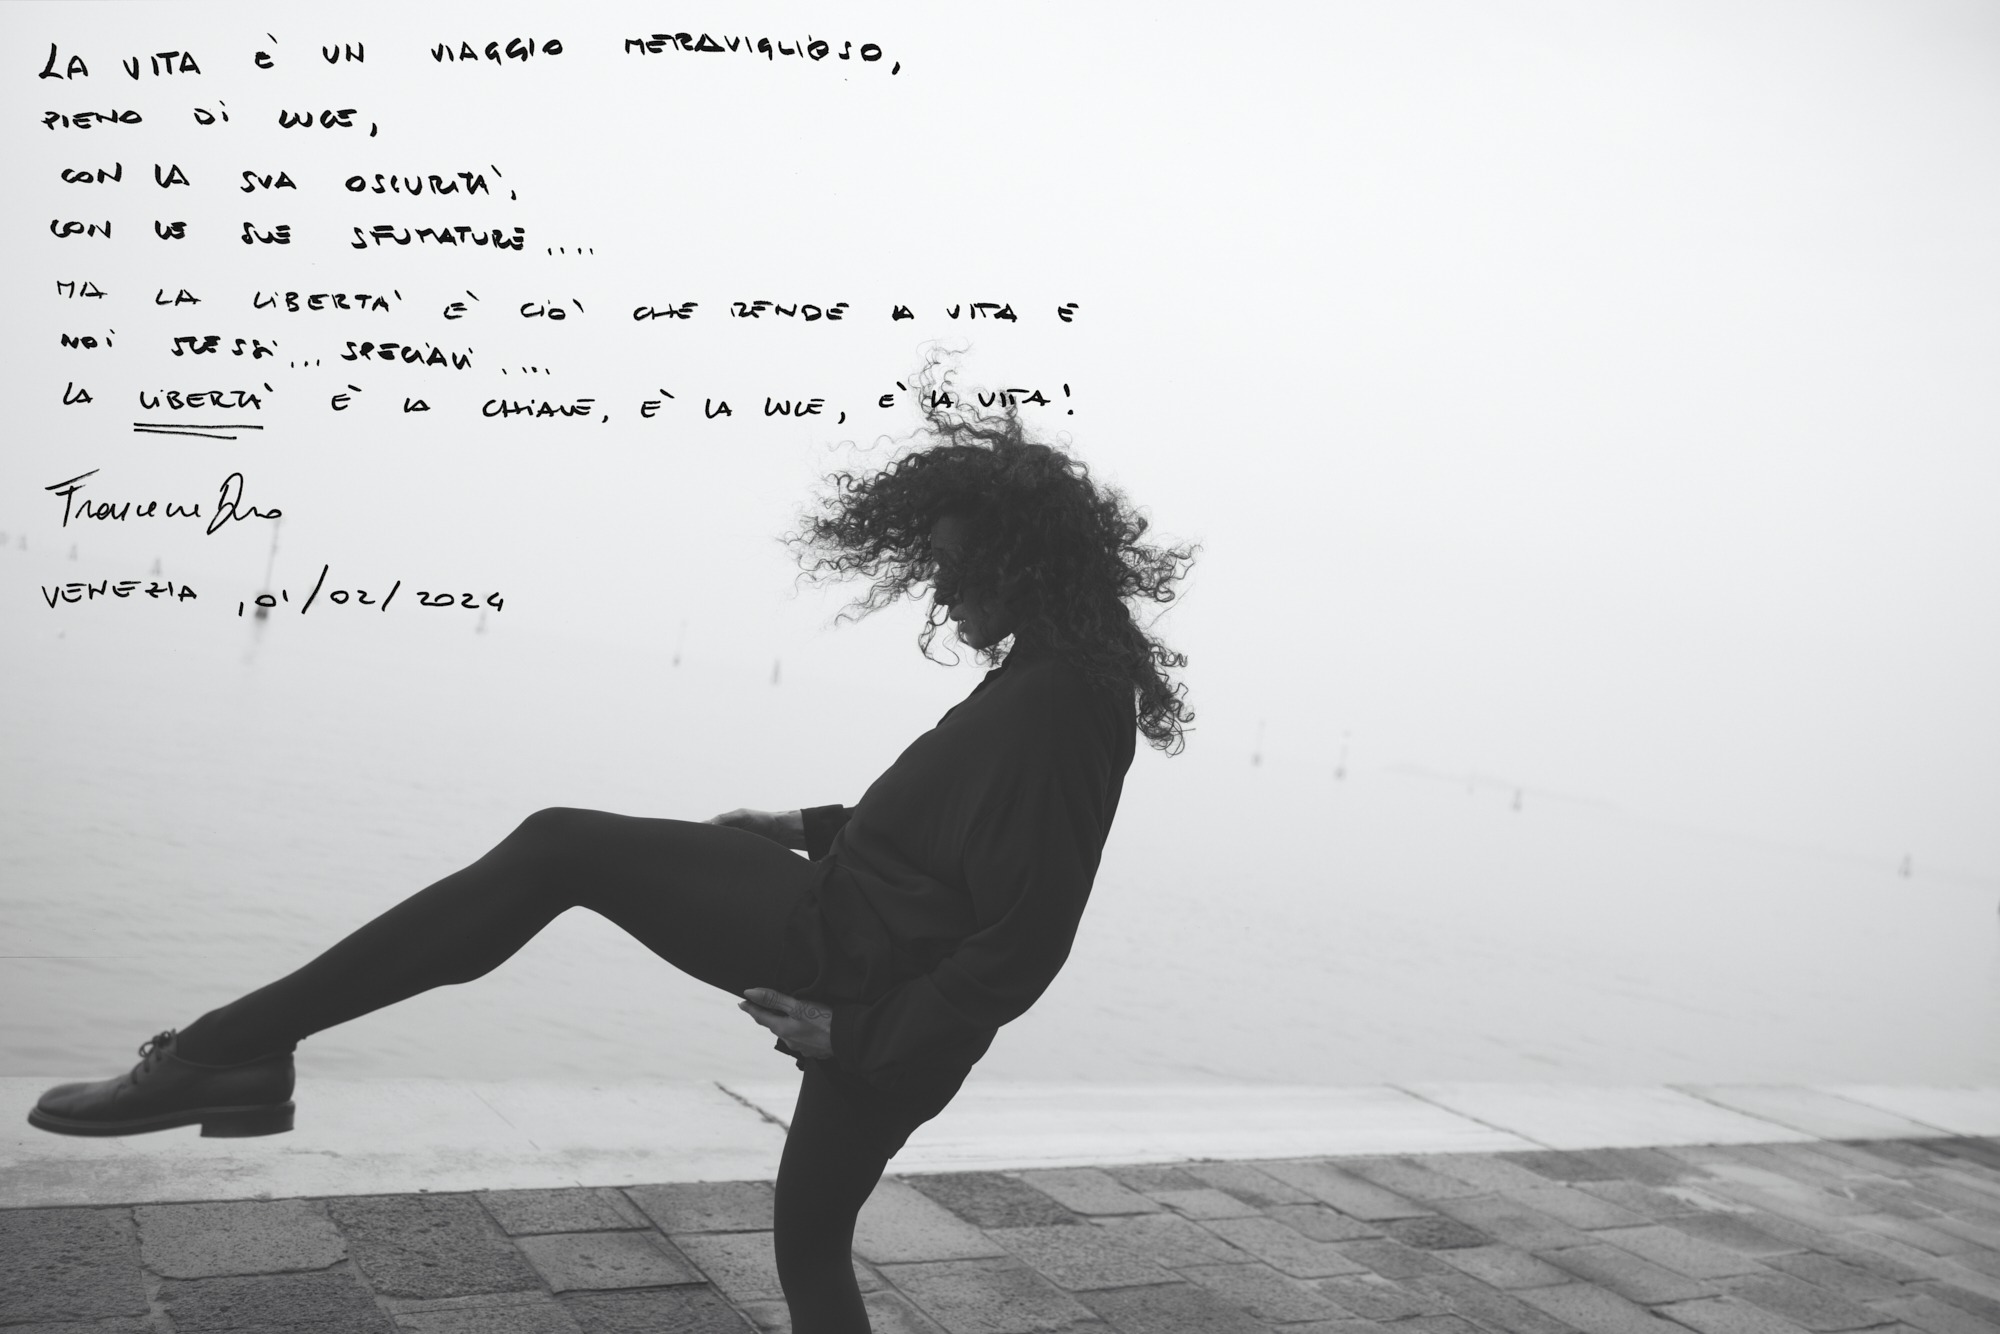 LA VITA È UN VIAGGIO MERAVIGLIOSO,
PIENO DI LUCE,
CON LA SUA OSCURITA',
CON LE SUE SFUMATURE....
MA LA LIBERTA' E' CIO' CHE RENDE LA VITA E
NOI STESSI... SPECIALI....
LA LIBERTA' E' LA CHIAVE, E' LA LUCE, E' LA VITA!
VENEZIA, 01/02/2024